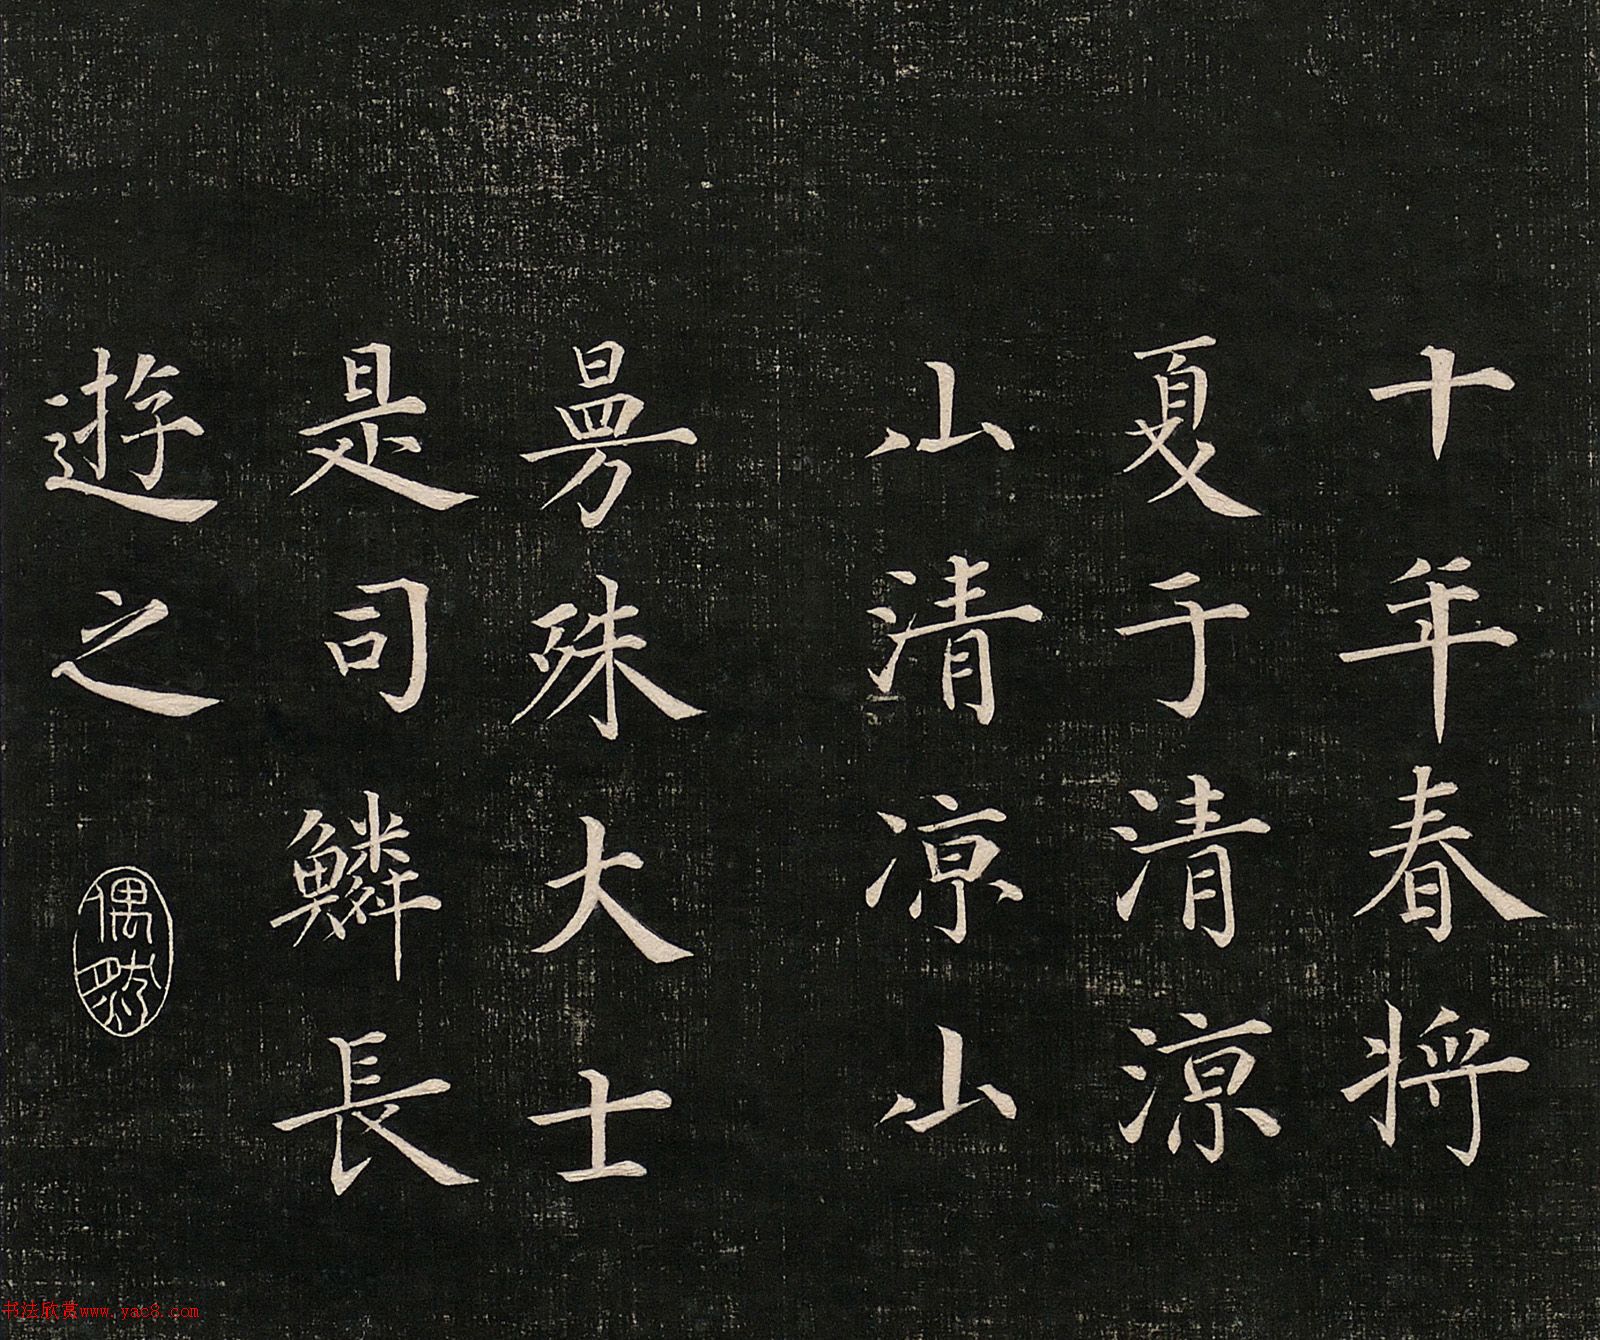 十年春将
夏于清凉
山清凉山
曼殊大士
是司鱗長
遊之
偶然
书法欣赏www.yac8.com